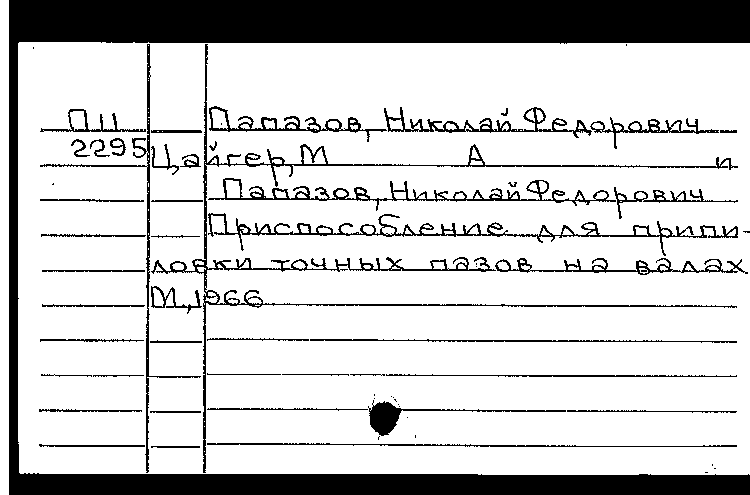 П11 Папазов, Николай Федорович
2295 Цайгер, М А и
Папазов, Николай Федорович
Приспособление для припи-
ловки точных пазов на валах
М., 1966